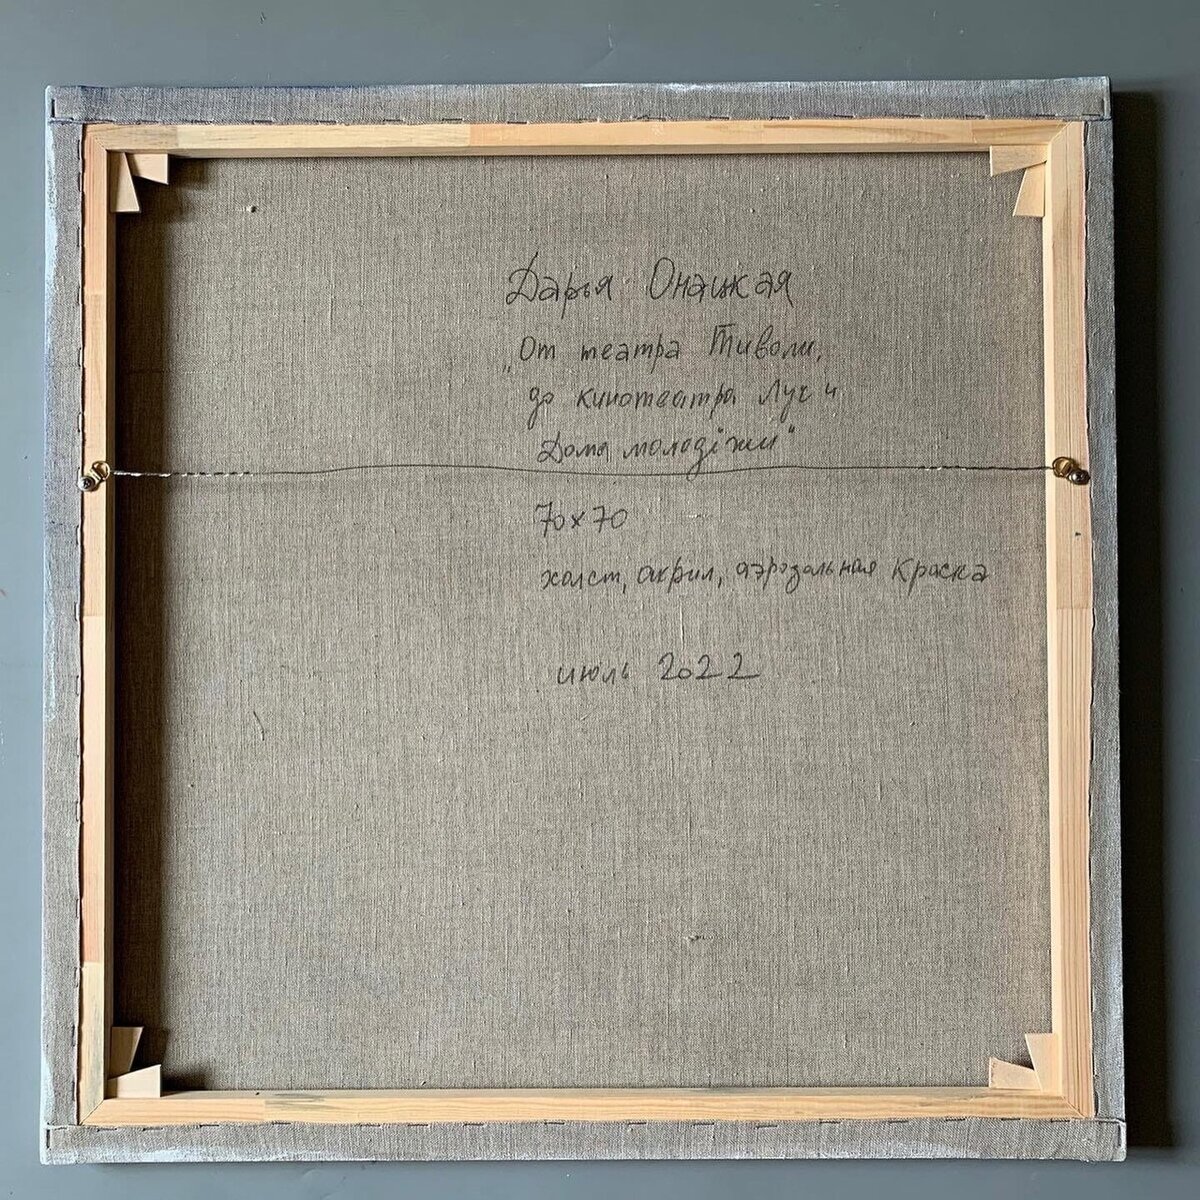 Дарья Онацкая
„От театра Тиволи,
до кинотеатра Луч и
Дома молодiжи"
70×70
холст, акрил, аэрозольная краска
июль 2022